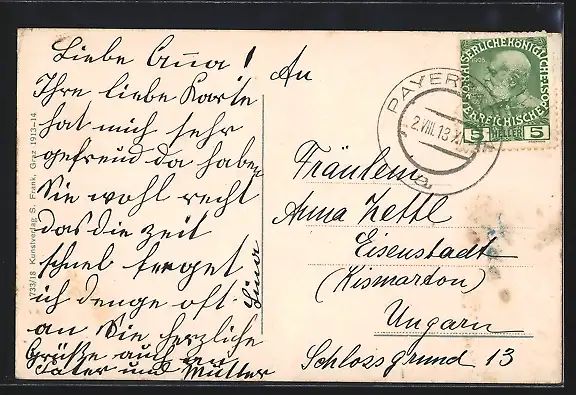 Liebe Anna!
Ihre liebe Karte
hat mich sehr
gefreud da haben
Sie wohl recht
das die zeit
schnel ferget
ich denge oft
an Sie herzliche
Grüße auch an
Vater und Mutter
Lina
An
Fräulein
Anna Zettl
Eisenstadt
(Kismarton)
Ungarn
Schlossgrund 13
PAYER
2.VIII.13.XI
a
KAISERLICHE KÖNIGLICHE
ÖSTERREICHISCHE POST
5 HELLER 5
1733/18 Kunstverlag S. Frank, Graz 1913-14